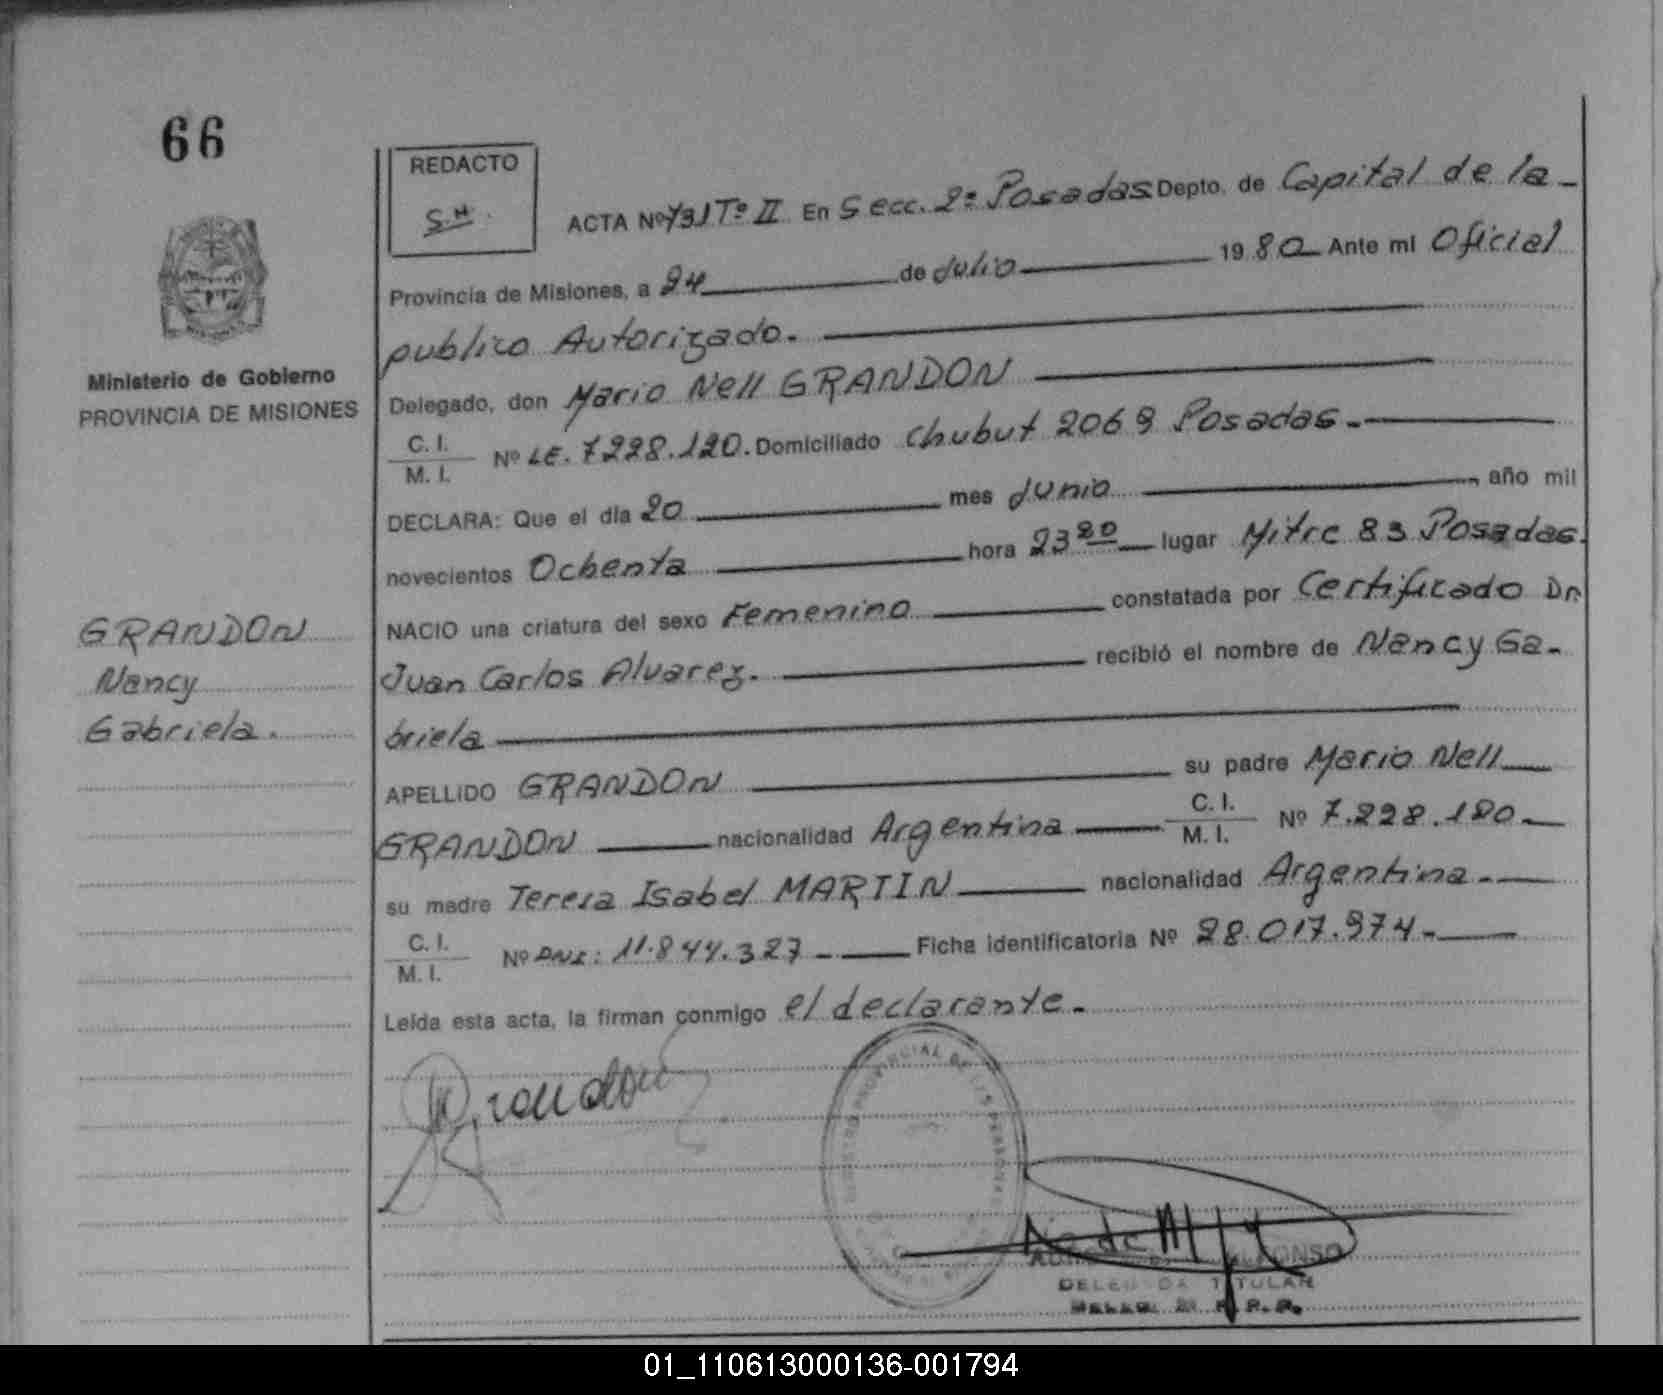 66
REDACTO
S.N.
ACTA Nº 731 Tº II En Secc. 2ª Posadas Depto. de Capital de la
Provincia de Misiones, a 24 de Julio 1980 Ante mi Oficial
publico Autorizado.
Delegado, don Mario Nell GRANDON
C. I.
M. I.
Nº LE. 7.228.120. Domiciliado Chubut 2069 Posadas.
DECLARA: Que el día 20 mes Junio, año mil
novecientos Ochenta hora 23 20 lugar Mitre 83 Posadas.
NACIO una criatura del sexo Femenino constatada por Certificado Dr.
Juan Carlos Alvarez. recibió el nombre de Nancy Ga-
briela
APELLIDO GRANDON su padre Mario Nell
GRANDON nacionalidad Argentina C. I. M. I. Nº 7.228.120
su madre Teresa Isabel MARTIN nacionalidad Argentina.
C. I.
M. I.
Nº DNI: 11.844.327 Ficha identificatoria Nº 28.017.974.
Leída esta acta, la firman conmigo el declarante.
Ministerio de Gobierno
PROVINCIA DE MISIONES
GRANDON
Nancy
Gabriela.
Grandon
PROVINCIAL DE LAS PERSONAS
ALFONSO
DELEGADA TITULAR
01_110613000136-001794